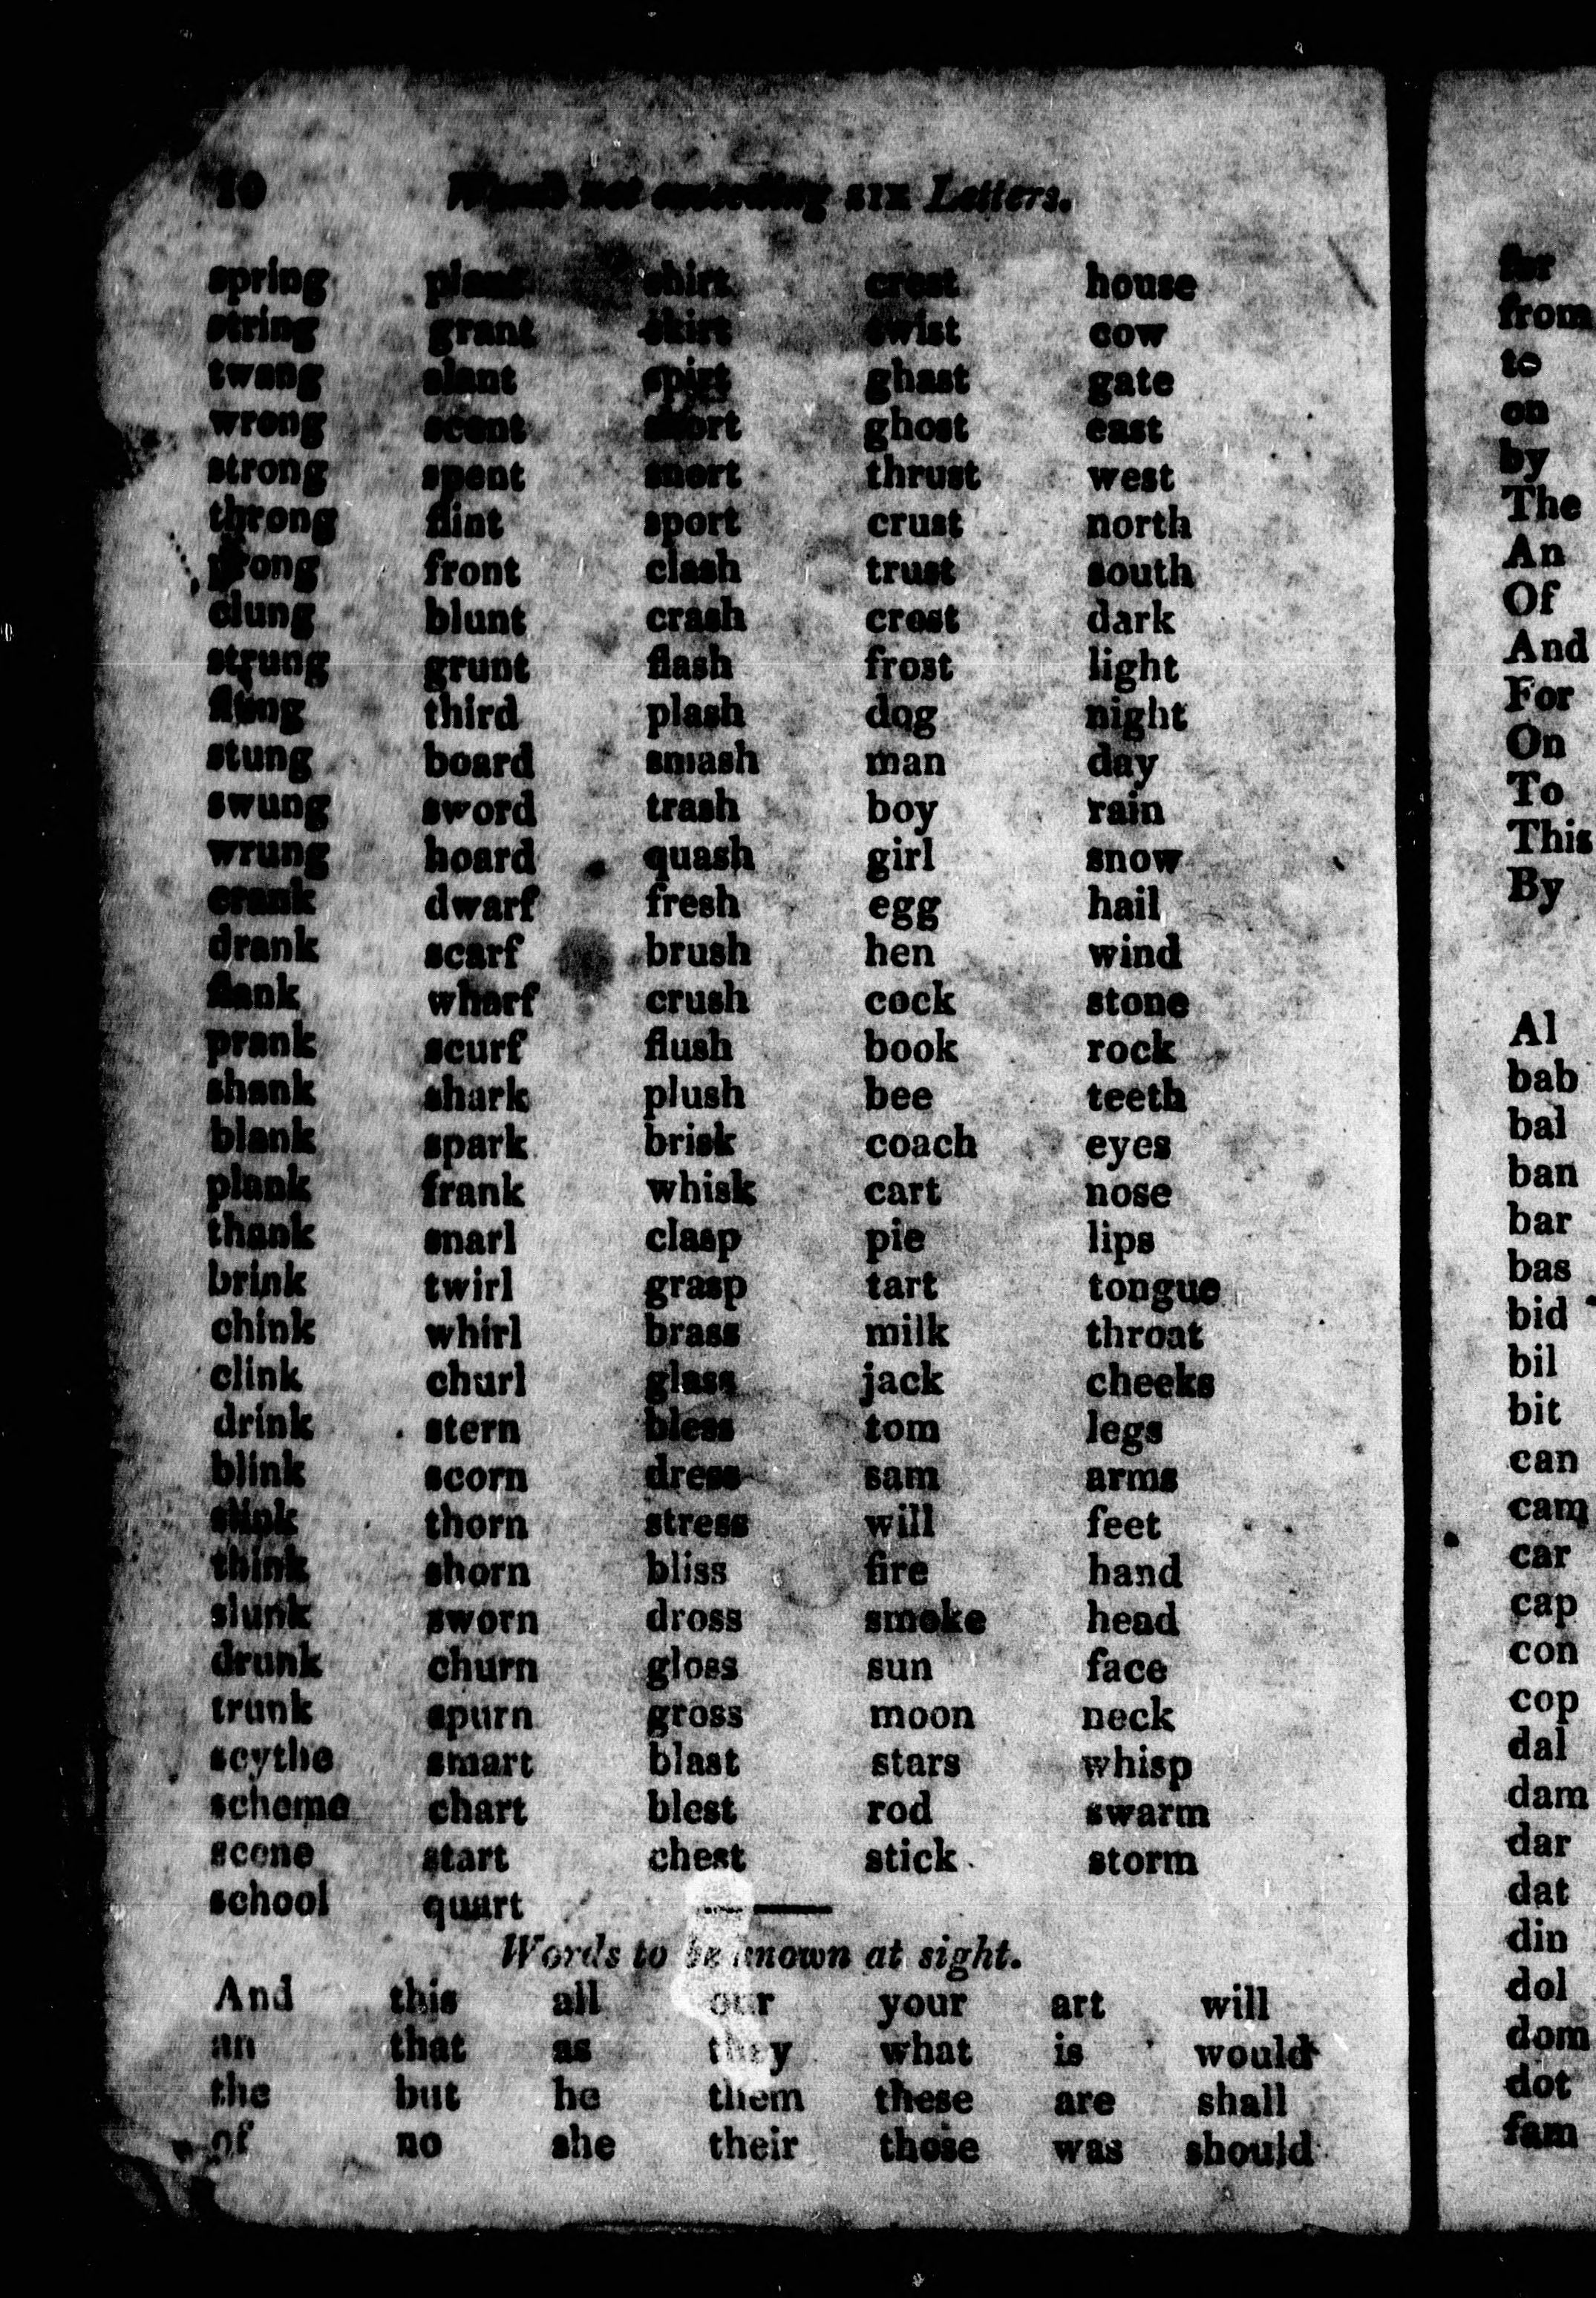 10 Words not exceeding SIX Letters.
spring plant shirt crest house
string grant skirt twist cow
twang slant spirt ghast gate
wrong scent short ghost east
strong spent snort thrust west
throng flint sport crust north
prong front clash trust south
clung blunt crash crost dark
strung grunt flash frost light
flung third plash dog night
stung board smash man day
swung sword trash boy rain
wrung hoard quash girl snow
crank dwarf fresh egg hail
drank scarf brush hen wind
flank wharf crush cock stone
prank scurf flush book rock
shank shark plush bee teeth
blank spark brisk coach eyes
plank frank whisk cart nose
thank snarl clasp pie lips
brink twirl grasp tart tongue
chink whirl brass milk throat
clink churl glass jack cheeks
drink stern bless tom legs
blink scorn dress sam arms
slink thorn stress will feet
think shorn bliss fire hand
slunk sworn dross smoke head
drunk churn gloss sun face
trunk spurn gross moon neck
scythe smart blast stars whisp
scheme chart blest rod swarm
scene start chest stick storm
school quart
Words to be known at sight.
And this all our your art will
an that as they what is would
the but he them these are shall
of no she their those was should
for
from
to
on
by
The
An
Of
And
For
On
To
This
By
Al
bab
bal
ban
bar
bas
bid
bil
bit
can
cam
car
cap
con
cop
dal
dam
dar
dat
din
dol
dom
dot
fam